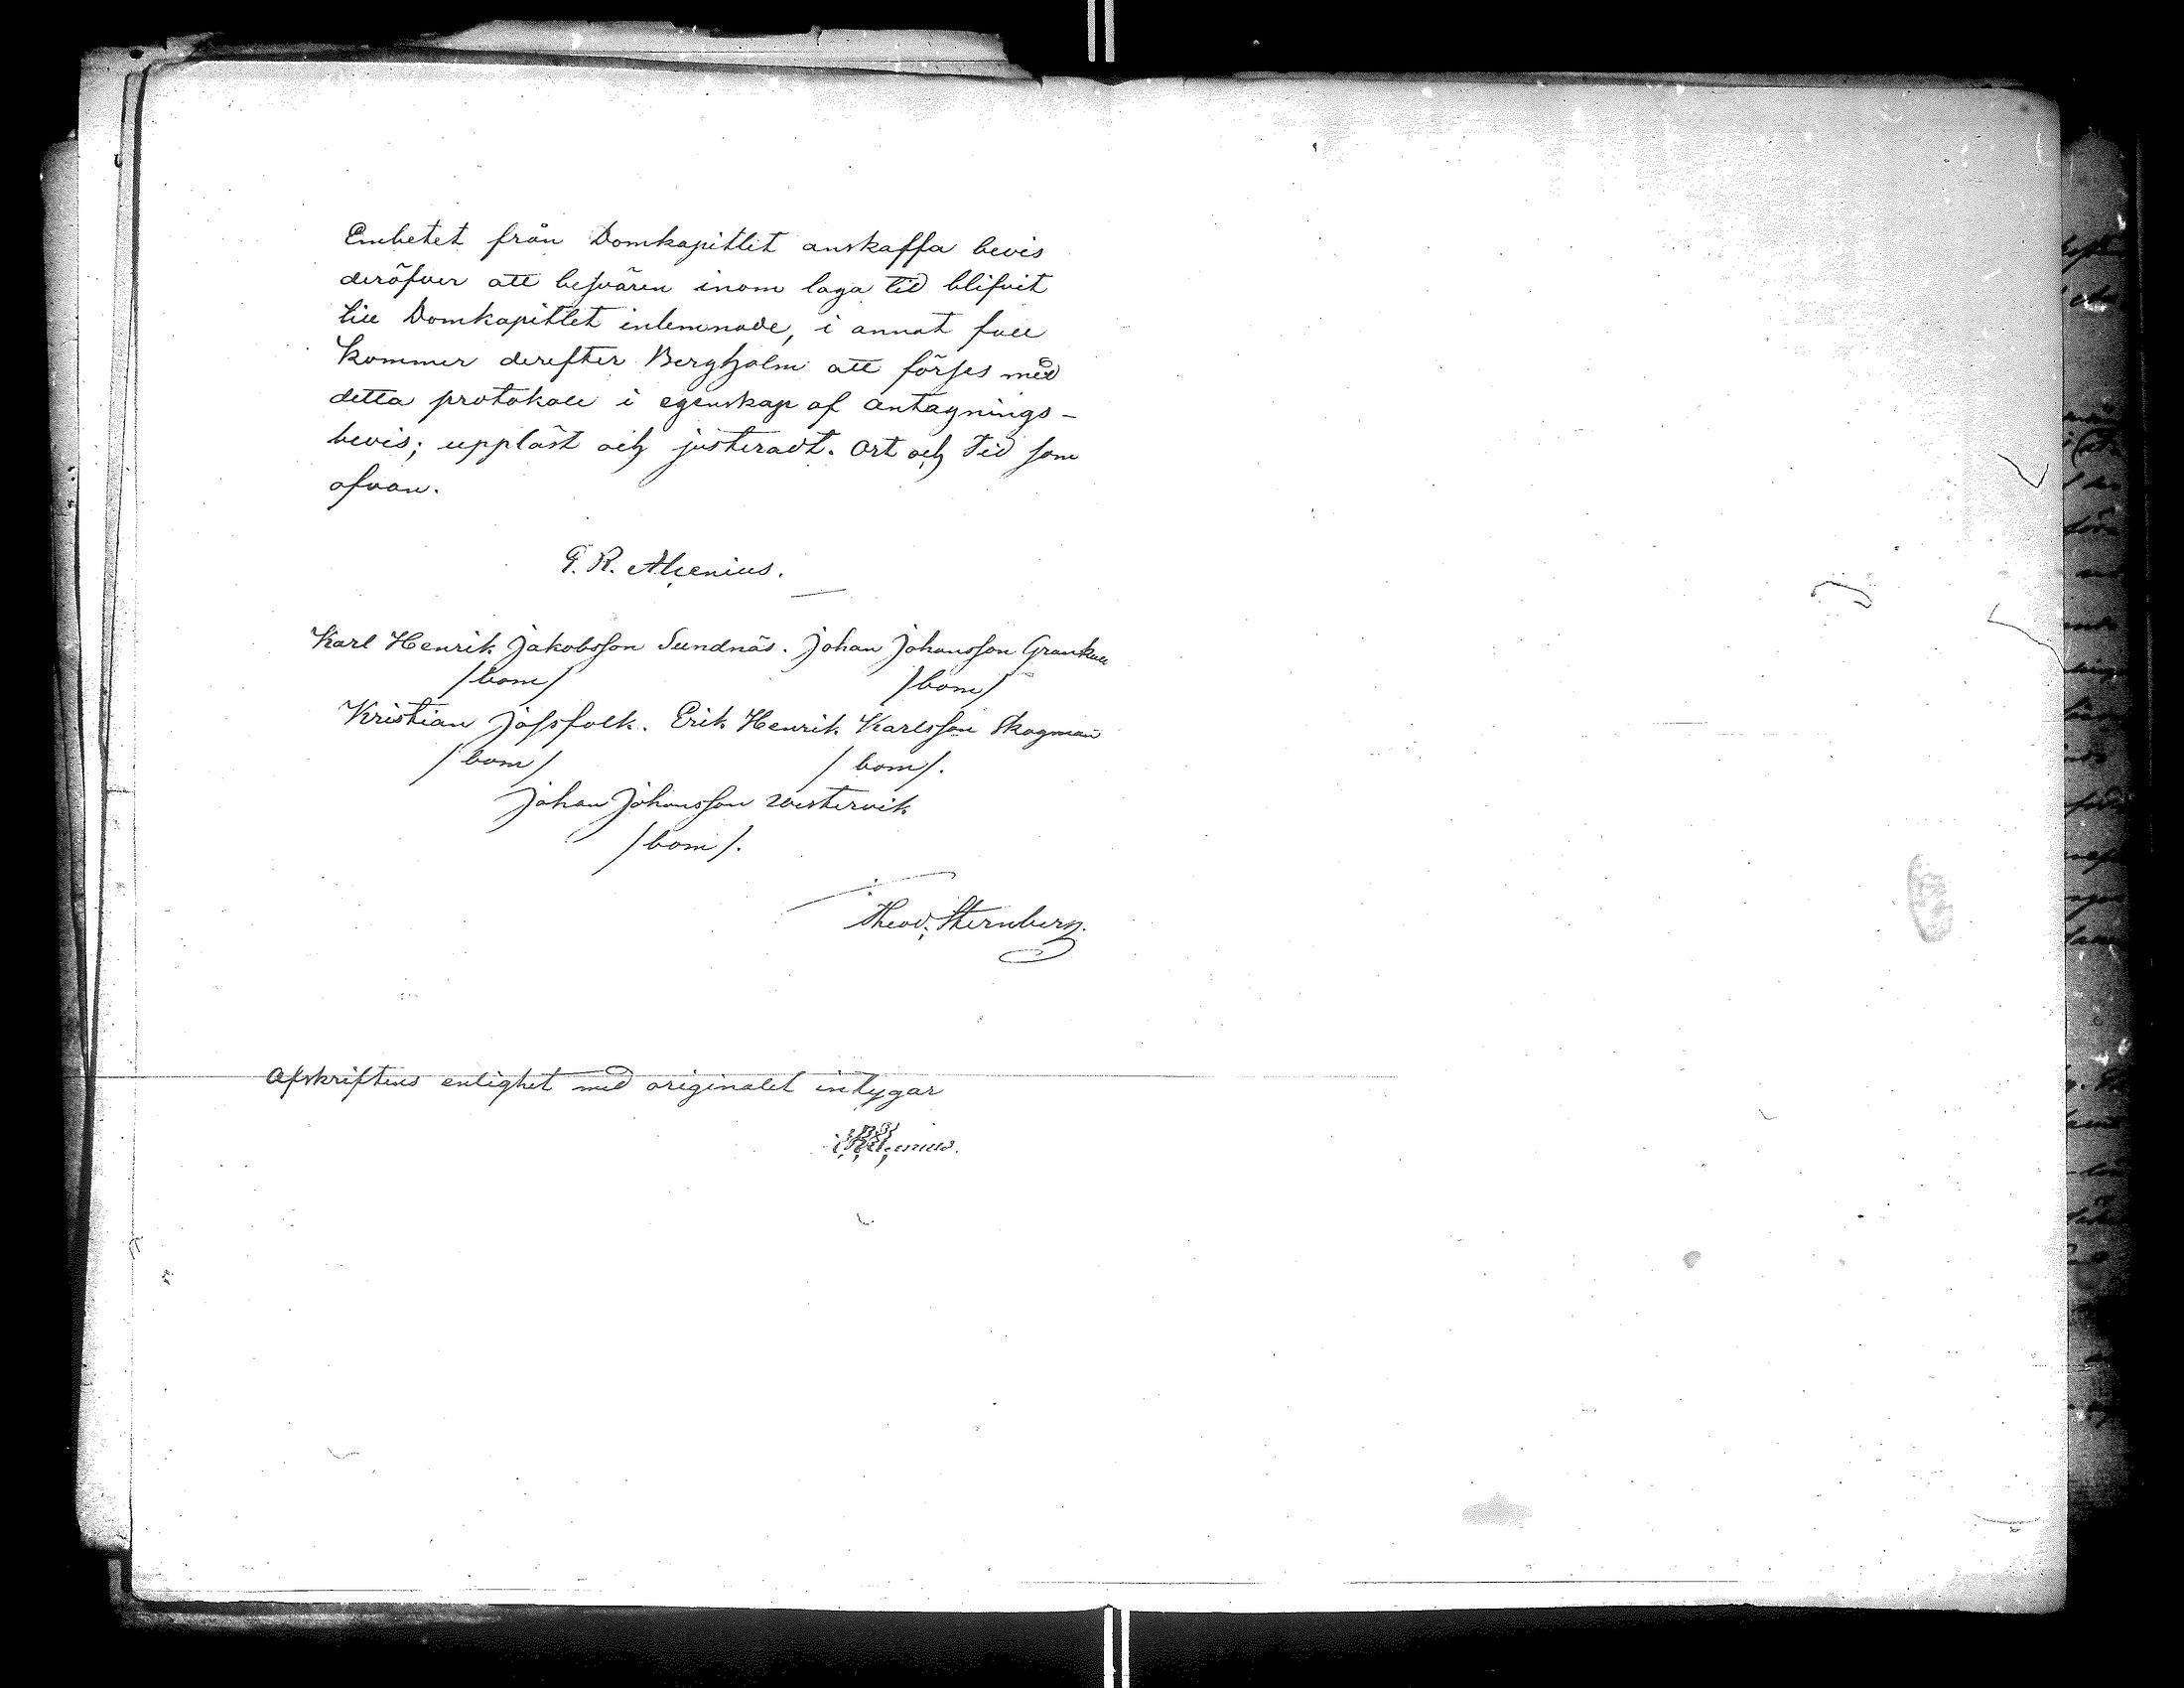 Embetet från Domkapitlet anskaffa bevis
deröfver att besvären inom laga tid blifvit
till Domkapitlet inlemnade, i annat fall
kommer derefter Bergholm att förses med
detta protokoll i egenskap af antagnings-
bevis; uppläst och justeradt. Ort och tid som
ofvan.
G. R. Alcenius.
Karl Henrik Jakobsson Sundnäs. Johan Johansson Grankull
/bom/ /bom/
Kristian Jofsfolk. Erik Henrik Karlsson Skogman
/bom/ /bom/.
Johan Johansson Westervik
/bom/.
Theod. Sternberg.
Afskriftens enlighet med originalet intygar
Alcenius.